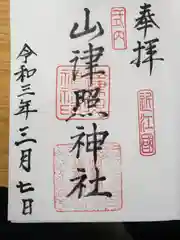 奉拝
式内
近江國
山津照神社
令和三年三月七日